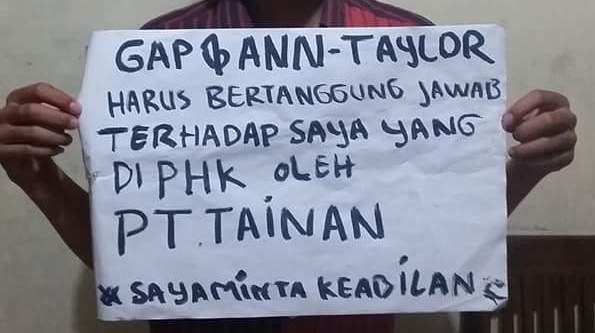 GAP & ANN-TAYLOR
HARUS BERTANGGUNG JAWAB
TERHADAP SAYA YANG
DI PHK OLEH
PT. TAINAN
* SAYA MINTA KEADILAN